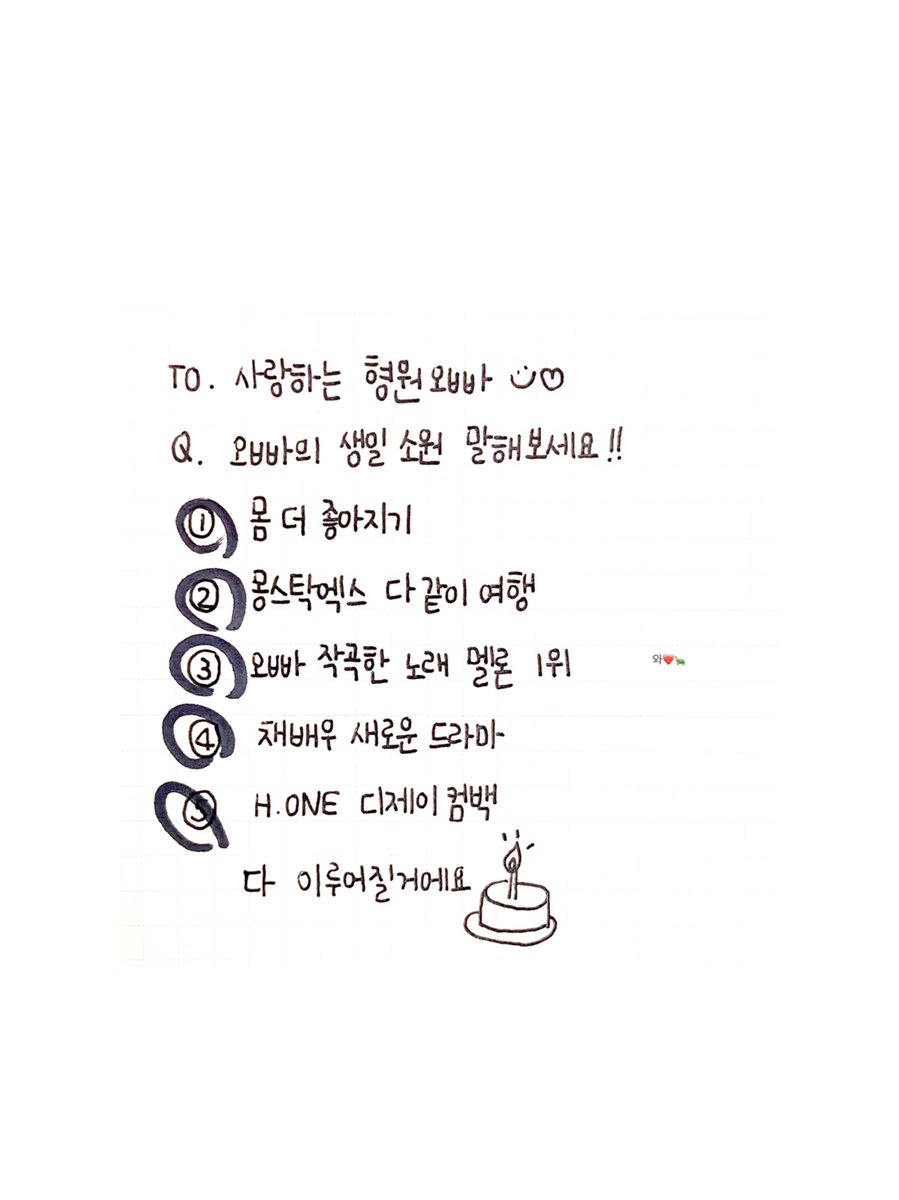 TO. 사랑하는 형원오빠
Q. 오빠의 생일 소원 말해보세요!!
① 몸 더 좋아지기
② 몽스탁엑스 다같이 여행
③ 오빠 작곡한 노래 멜론 1위
와❤️🐢
④ 채배우 새로운 드라마
⑤ H.ONE 디제이 컴백
다 이루어질거에요